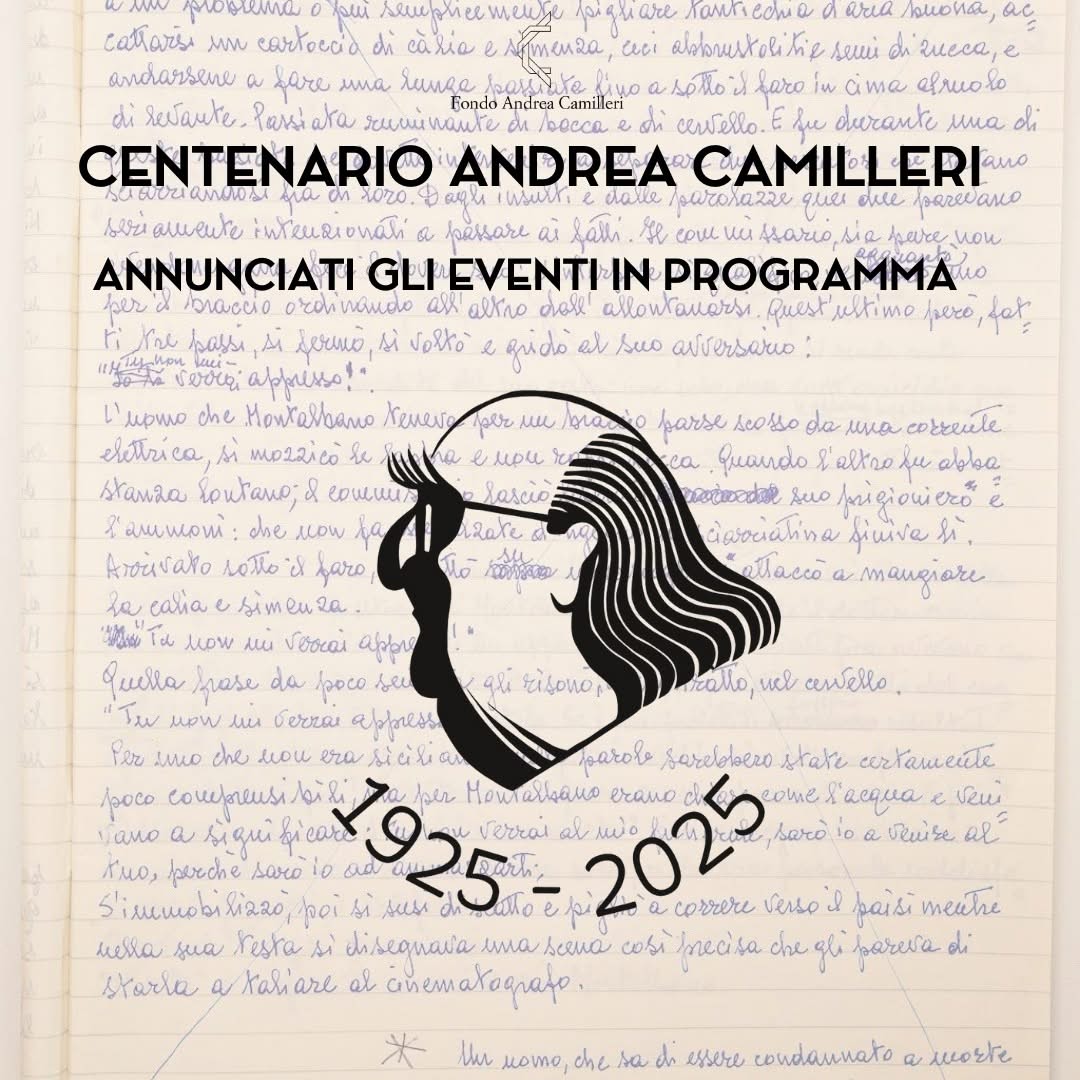 a un problema o più semplicemente pigliare tanticchia d'aria buona, ac
cattarsi un cartoccio di càlia e simenza, ceci abbrustoliti e semi di zucca, e
andarsene a fare una lunga passiata fino a sotto il faro in cima al molo
Fondo Andrea Camilleri
di levante. Passiata ruminante di bocca e di cervello. E fu durante una di
CENTENARIO ANDREA CAMILLERI
sciarriandosi fra di loro. Dagli insulti e dalle parolazze quei due parevano
seriamente intenzionati a passare ai fatti. Il commissario, sia pure non
ANNUNCIATI GLI EVENTI IN PROGRAMMA
per il braccio ordinando all'altro dall'allontanarsi. Quest'ultimo però, fat
ti tre passi, si fermò, si voltò e gridò al suo avversario:
"Tu non mi
verrai appresso!".
L'uomo che Montalbano teneva per un braccio parse scosso da una corrente
elettrica, si mozzicò le e non bocca. Quando l'altro fu abba
stanza lontano, il commissario lasciò suo prigioniero e
l'ammonì: che non sciarriatina finiva lì.
Arrivato sotto il faro, su attaccò a mangiare
la calia e simenza.
"Tu non mi verrai appresso!"
Quella frase da poco gli risonò, nel cervello.
"Tu non mi verrai appresso
Per uno che non era siciliano parole sarebbero state certamente
poco comprensibili, ma per Montalbano erano chiare come l'acqua e veni
vano a significare: tu non verrai al mio funerale, sarò io a venire al
tuo, perché sarò io ad ammazzarti.
1925 - 2025
S'immobilizzò, poi si susì di scatto e pigliò a correre verso il paisi mentre
nella sua testa si disegnava una scena così precisa che gli pareva di
starla a taliare al cinematografo.
Un uomo, che sa di essere condannato a morte